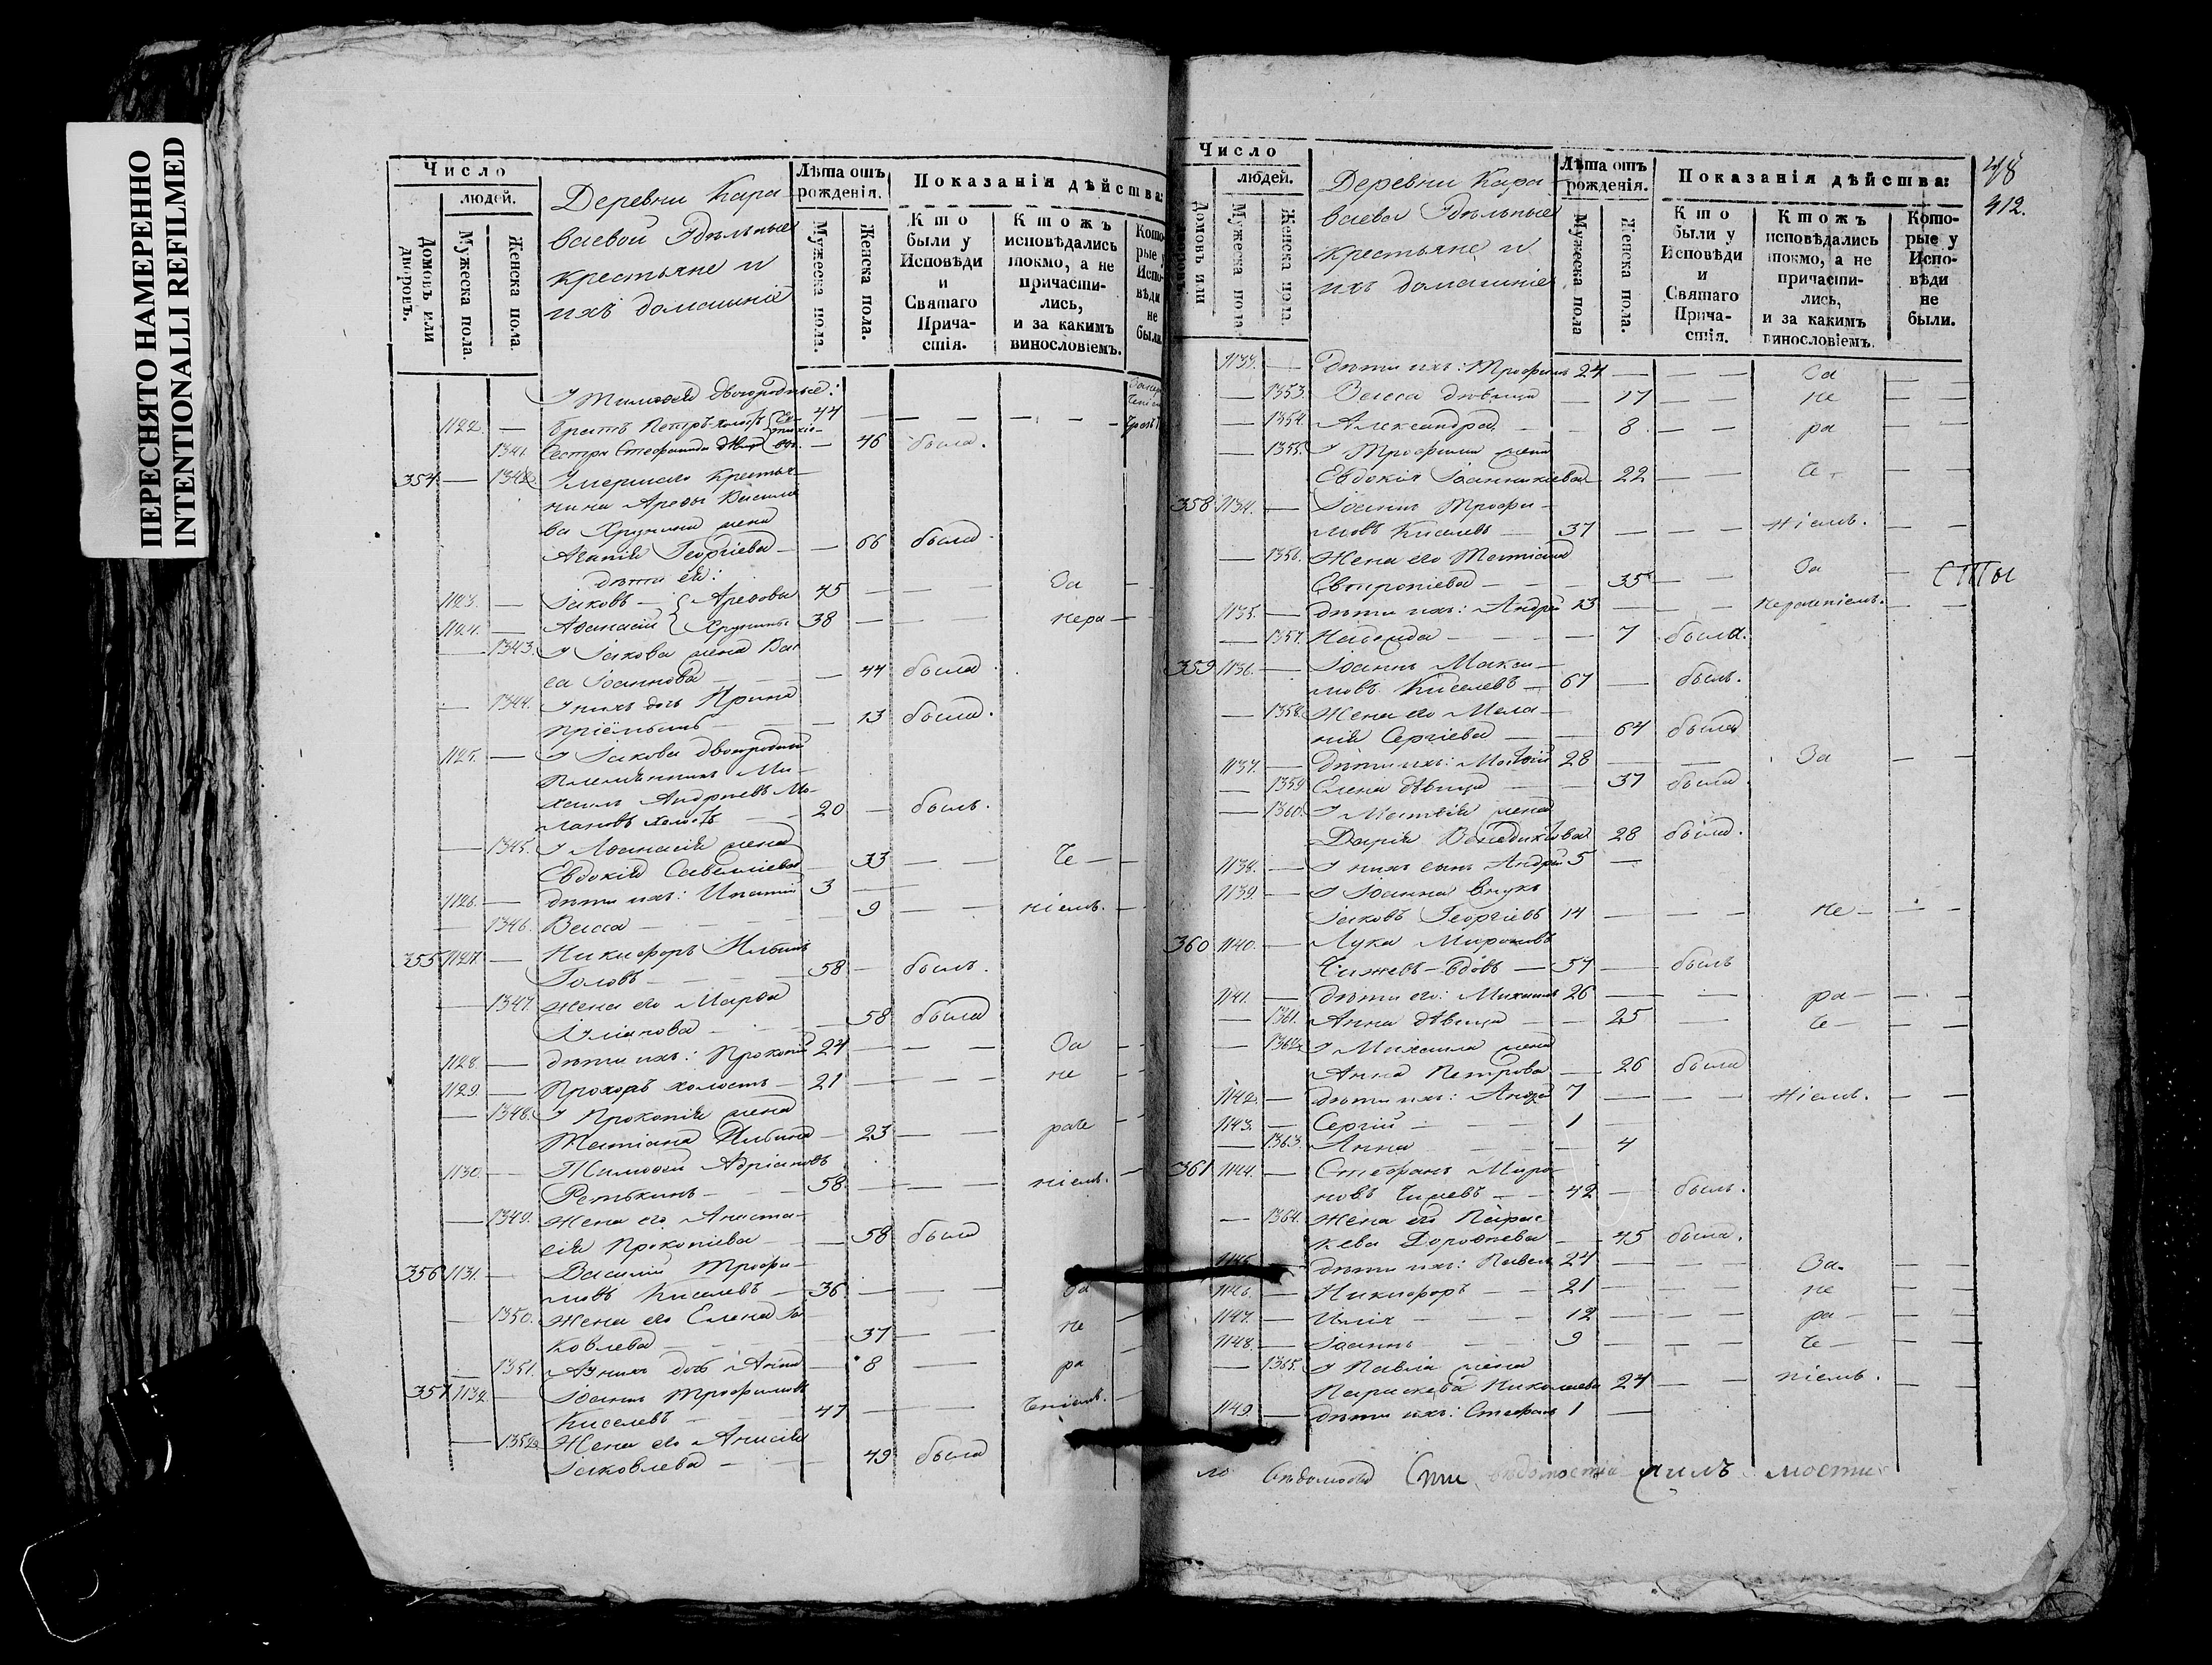 ПЕРЕСНЯТО НАМЕРЕННО
INTENTIONALLI REFILMED
Число
людей.
Домовъ или дворовъ.
Мужеска пола.
Женска пола.
Деревни Кара-
ваевой Удѣльные
крестьяне и
ихъ домашніе
Лѣта отъ рожденія.
Мужеска пола.
Женска пола.
Показанія дѣйства:
Кто были у Исповѣди и Святаго Причастія.
Ктожъ исповѣдались токмо, а не причастились, и за какимъ винословіемъ.
Которые у Исповѣди не были.
У Тимофея двоюродные:
1122. — братъ Петръ холостъ 44 — — — —
1341. Сестра Стефанида — 46 была.
354 — 1342. Умершаго крестья-
нина Арефы Василье-
ва Хрунина жена
Агапія Георгіева — — 66 была.
дѣти ея:
1123. — Іаковъ — Арефовы 45 — — За —
1124. — Афанасій Хрунины 38 — — нера —
— 1343. У Іакова жена Вас
са Іоаннова — — 44 была.
— 1344. У нихъ дочь Ирина
пріемышъ — — 13 была.
1125. — У Іакова двоюродный
племянникъ Ми-
хаилъ Андреевъ Мо-
лановъ холостъ — 20 — былъ.
— 1345. У Афанасія жена
Евдокія Савелліева 33 — — че — —
1126. — дѣти ихъ: Ипатій 3 —
— 1346. Васса — — 9 — — ніемъ. —
355 1127. — Никифоръ Ильинъ
Головъ — — 58 — былъ.
— 1347. жена его Марфа
Іуліанова — — 58 была
1128. — дѣти ихъ: Прокопій 24 — — За —
1129. — Прохоръ холостъ — 21 — — не —
— 1348. У Прокопія жена
Татіана Ильина — 23 — — раче —
1130. — Тимофей Адріановъ
Ретькинъ — — 58 — — ніемъ. —
— 1349. жена его Анаста-
сія Прокопіева — — 58 была
356 1131. — Василій Трофи-
мовъ Киселевъ — 36 — — За
— 1350. жена его Елена Іа
ковлева — — 37 — — не —
— 1351. У нихъ дочь Анна — 8 — — ра —
357 1132. — Іоаннъ Трофимовъ
Киселевъ — — 47 — — ченіемъ. —
— 1352. Жена его Анисія
Іаковлева — — 49 была
Число
людей.
Домовъ или дворовъ.
Мужеска пола.
Женска пола.
Деревни Кара-
ваевой Удѣльные
крестьяне и
ихъ домашніе
Лѣта отъ рожденія.
Мужеска пола
Женска пола.
Показанія дѣйства:
Кто были у Исповѣди и Святаго Причастія.
Ктожъ исповѣдались токмо, а не причастились, и за какимъ винословіемъ.
Которые у Исповѣди не были.
412.
1133. — дѣти ихъ: Трофимъ 24 — — За — —
— 1353. Васса дѣвица — 17 — — не — —
— 1354. Александра — — 8 — — ра — —
— 1355. У Трофима жена
Евдокія Іоанникіева 22 — — че — —
358 1134. — Іоаннъ Трофи-
мовъ Киселевъ — 37 — — — ніемъ. — —
— 1356. Жена его Татіана
Евтропіева — — 35 — — За —
СТЫ
1135. — дѣти ихъ: Андрей 13 — — — нераченіемъ. — —
— 1357. Надежда — — — 7 была.
359 1136. — Іоаннъ Макси-
мовъ Киселевъ — 67 — былъ.
— 1358. Жена его Мела-
нія Сергіева — — 64 была
1137. — дѣти ихъ: Матвій 28 — — За — —
— 1359 Елена дѣвица — — 37 была.
— 1360. У Матвія жена
Дарія Венедиктова 28 была.
1138. — У нихъ сынъ Андрей 5 —
1139. — У Іоанна внукъ
Іаковъ Георгіевъ 14 — — — не — — —
360 1140. — Лука Мироновъ
Чижевъ — вдовъ — 57 — былъ
1141. — дѣти его: Михаилъ 26 — — ра — — —
— 1361. Анна дѣвица — — 25 — че — — —
— 1362. У Михаила жена
Анна Петрова — 26 была
1142. — дѣти ихъ: Андрей 7 — — — ніемъ. — —
1143. — Сергій — — — 1 —
— 1363. Анна — — — 4
361 1144. — Стефанъ Миро-
новъ Чижевъ — — 42 — былъ.
— 1364. Жена его Парас-
кева Дорофеева — 45 была.
1145. — дѣти ихъ: Павелъ 24 — — — За. — —
1146. — Никифоръ — — 21 — — — не — —
1147. — Илія — — — 12 — — — ра — — —
1148. — Іоаннъ — — 9 — — — че — —
— 1365. У Павла жена
Параскева Николаева 24 — — ніемъ. — —
1149. — дѣти ихъ: Стефанъ 1 —